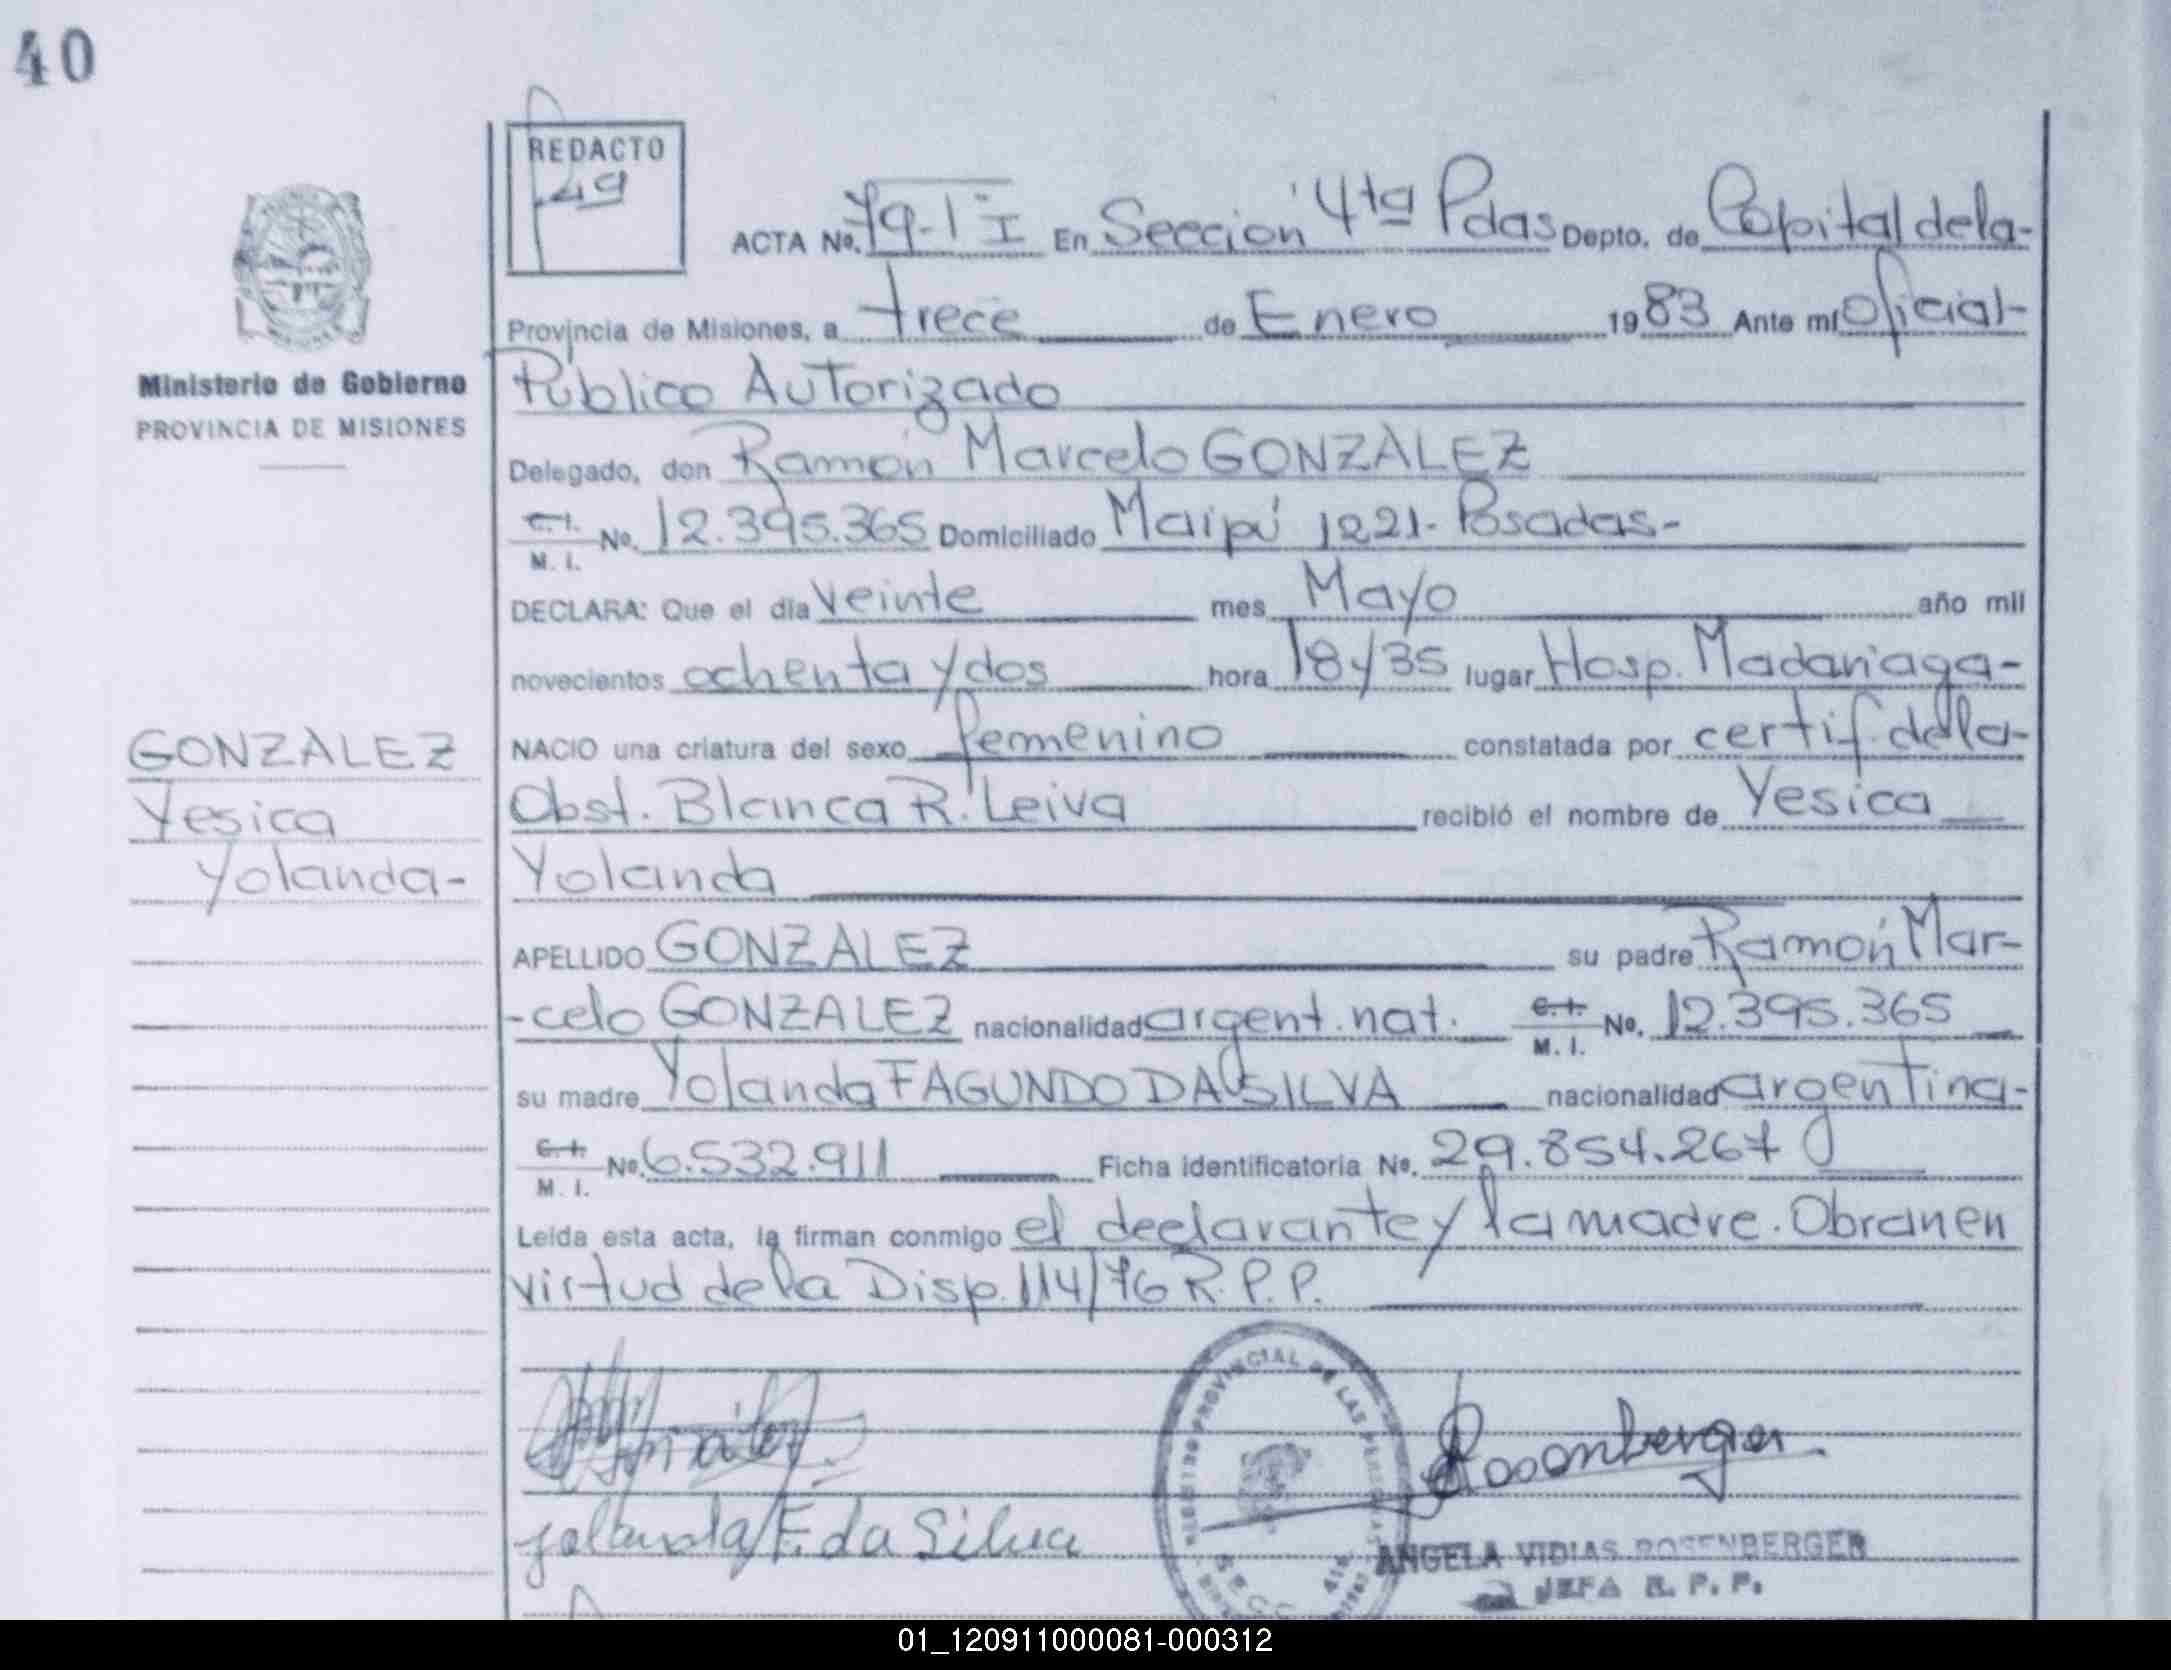 40
REDACTO
49
ACTA No. 79-1 I En Sección 4ta Pdas Depto. de Capital dela-
Provincia de Misiones, a trece de Enero 1983 Ante mí Oficial-
Ministerio de Gobierno
PROVINCIA DE MISIONES
Público Autorizado
Delegado, don Ramón Marcelo GONZALEZ
C.I. M. I. No. 12.395.365 Domiciliado Maipú 1221- Posadas-
DECLARA: Que el día veinte mes Mayo año mil
novecientos ochenta y dos hora 18 y 35 lugar Hosp. Madariaga-
NACIO una criatura del sexo femenino constatada por certif. dela-
GONZALEZ
Yesica
Yolanda-
Obst. Blanca R. Leiva recibió el nombre de Yesica
Yolanda
APELLIDO GONZALEZ su padre Ramón Mar-
-celo GONZALEZ nacionalidad argent. nat. C.I. M. I. No. 12.395.365
su madre Yolanda FAGUNDO DA SILVA nacionalidad argentina-
C.I. M. I. No. 6.532.911 Ficha identificatoria No. 29.854.267
Leída esta acta, la firman conmigo el declarante y la madre. Obran en
virtud de la Disp. 114/76 R.P.P.
REGISTRO PROVINCIAL DE LAS PERSONAS
Rosenberger
Yolanda F. da Silva
ANGELA VIDIAS ROSENBERGER
JEFA R. P. P.
01_120911000081-000312